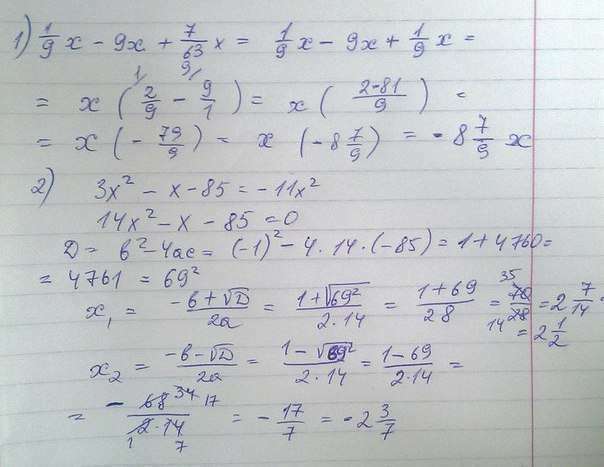 1) 1/9 x - 9x + 7/63 x = 1/9 x - 9x + 1/9 x =
= x (2/9 - 9/1) = x ((2-81)/9) =
= x (- 79/9) = x (-8 7/9) = -8 7/9 x
2) 3x² - x - 85 = -11x²
14x² - x - 85 = 0
D = b² - 4ac = (-1)² - 4·14·(-85) = 1 + 4760 =
= 4761 = 69²
x₁ = (-b + √D)/2a = (1 + √69²)/(2·14) = (1 + 69)/28 = 70/28 = 35/14 = 2 7/14 = 2 1/2
x₂ = (-b - √D)/2a = (1 - √69²)/(2·14) = (1 - 69)/(2·14) =
= - 68 34 17/(2·14) 1 7 = - 17/7 = -2 3/7